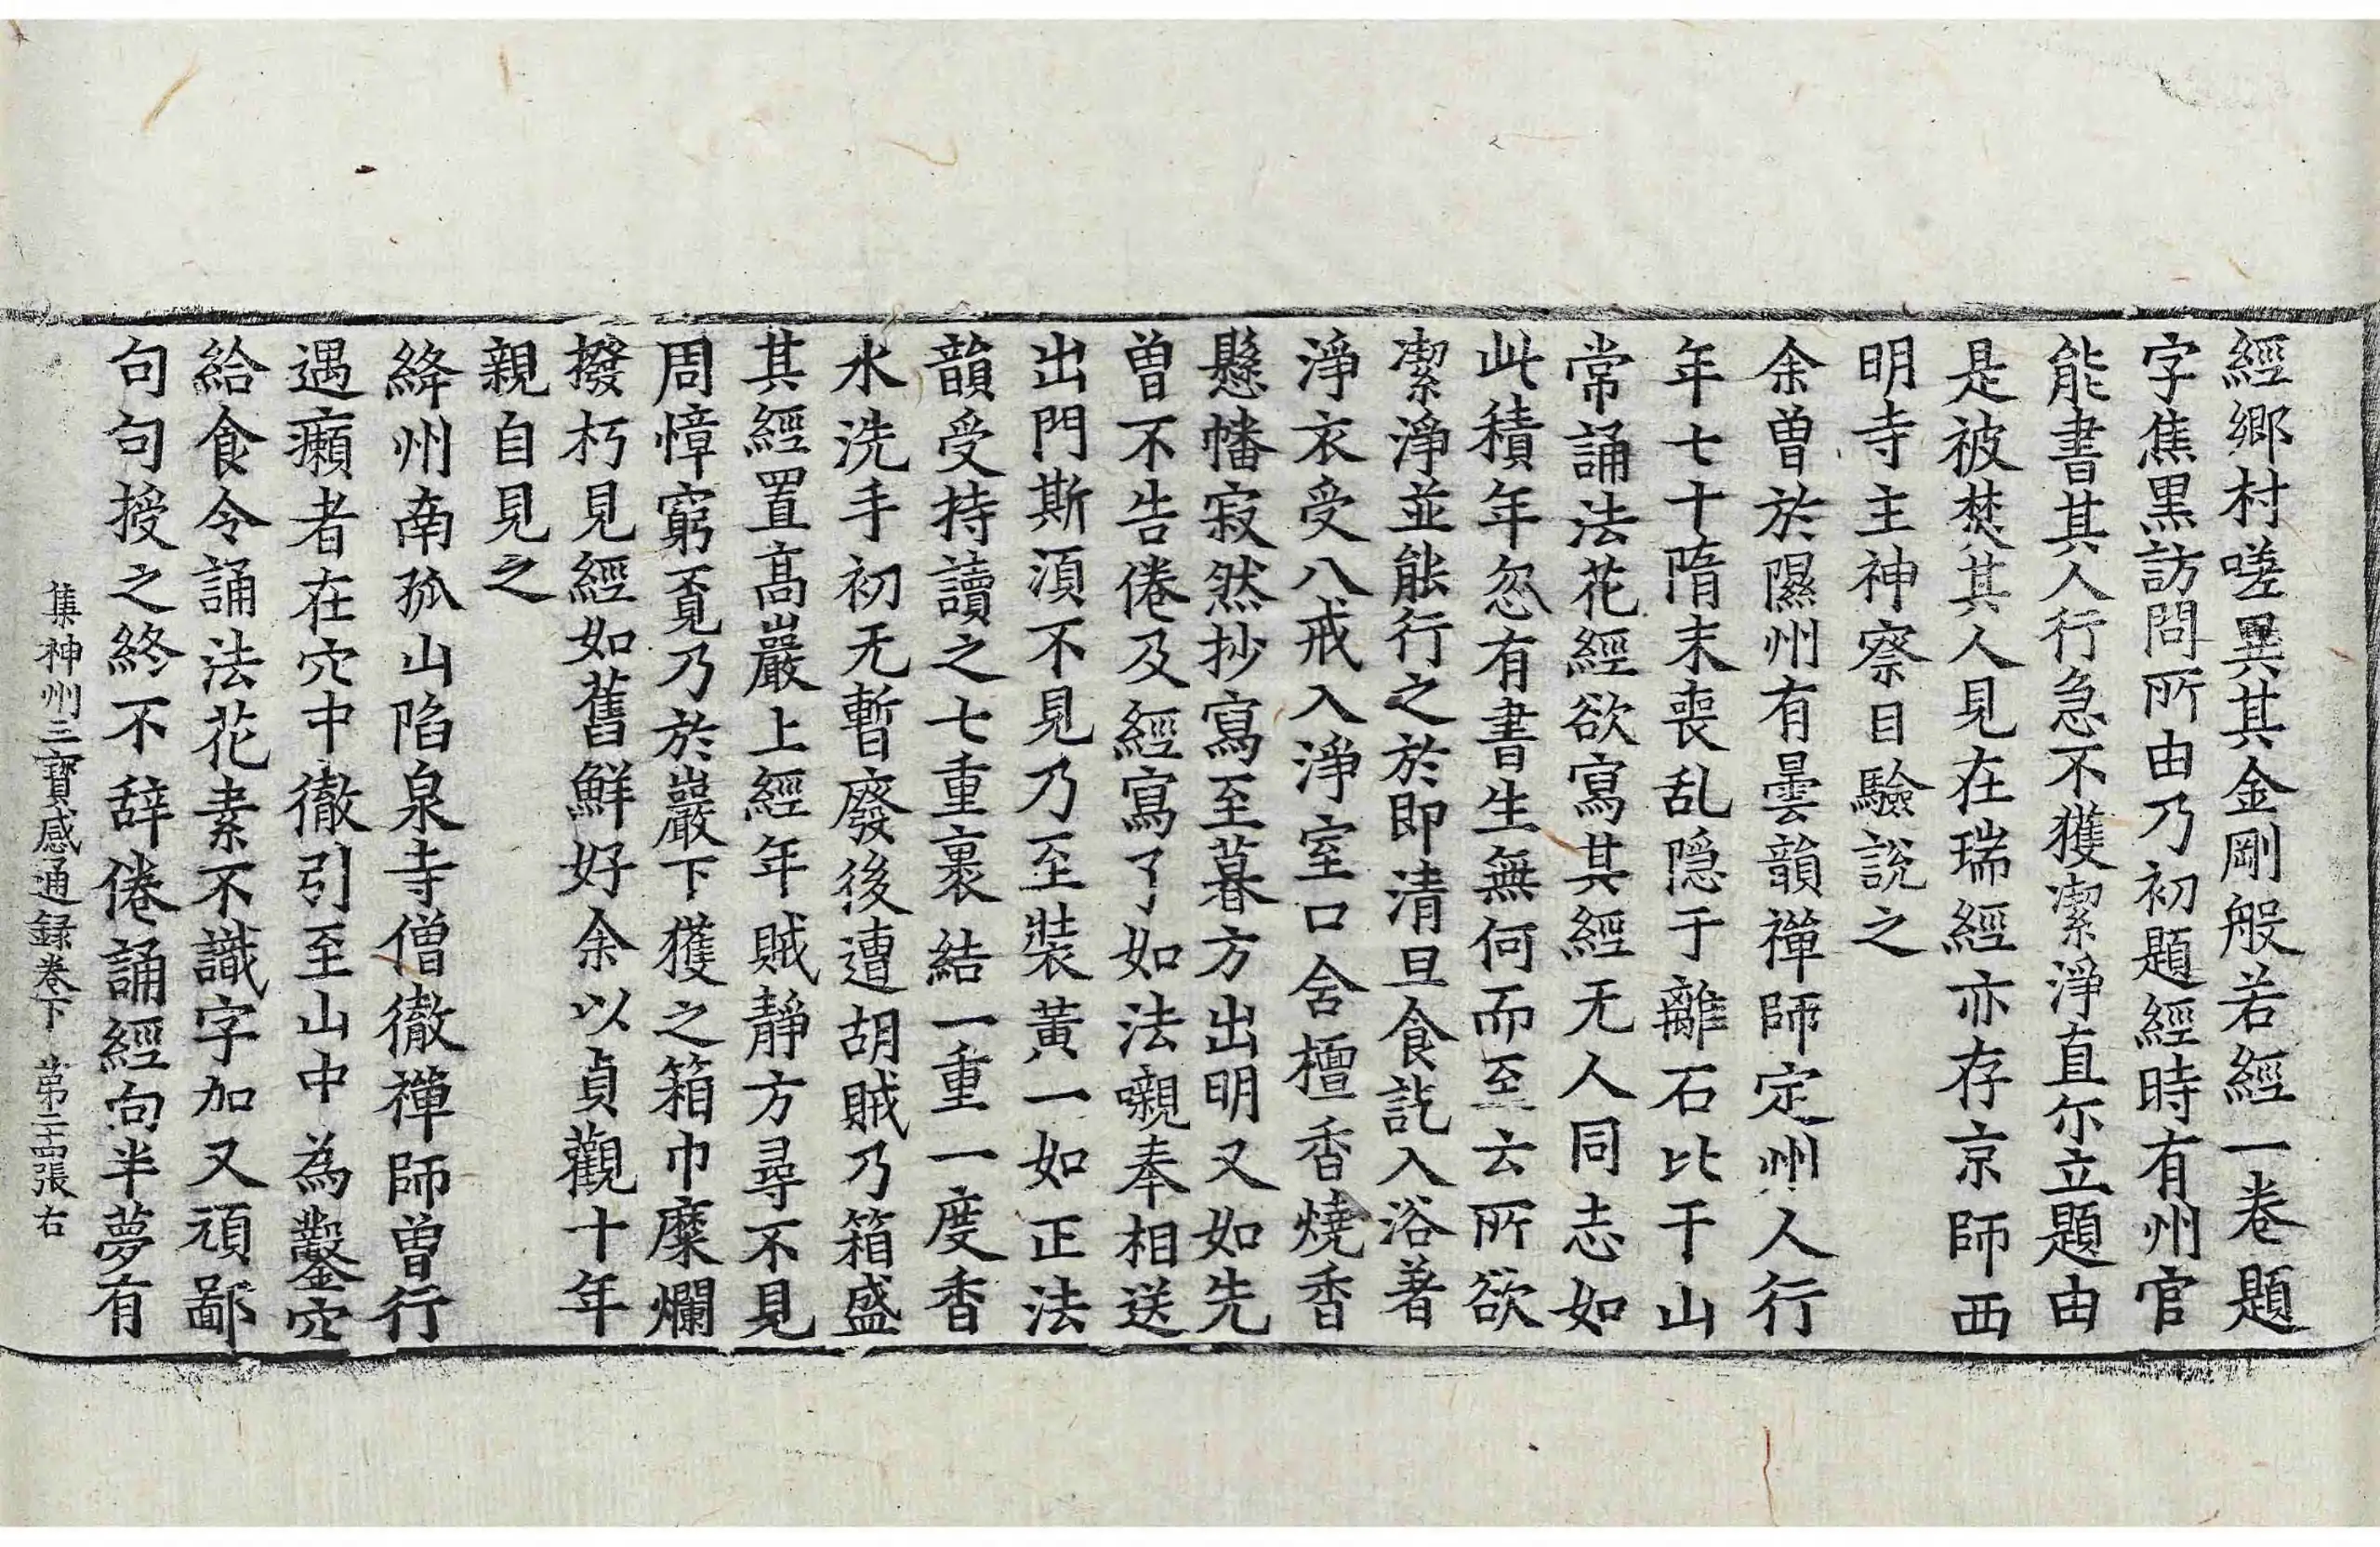 經鄉村嗟異其金剛般若經一卷題
字焦黒訪問所由乃初題經時有州官
能書其人行急不獲潔淨直尓立題由
是被焚其人見在瑞經亦存京師西
明寺主神察目驗說之
余曾於隰州有曇韻禪師定州人行
年七十隋末喪乱隠于離石比干山
常誦法花經欲寫其經无人同志如
此積年忽有書生無何而至云所欲
潔淨並能行之於即清旦食訖入浴著
淨衣受八戒入淨室口含檀香燒香
懸幡寂然抄寫至暮方出明又如先
曾不告倦及經寫了如法嚫奉相送
出門斯湏不見乃至裝黃一如正法
韻受持讀之七重裹結一重一度香
水洗手初无暫廢後遭胡賊乃箱盛
其經置髙巖上經年賊静方尋不見
周慞窮覔乃於巖下獲之箱巾糜爛
撥朽見經如舊鮮好余以貞觀十年
親自見之
絳州南孤山陷泉寺僧徹禪師曾行
遇癩者在穴中徹引至山中為鑿穴
給食令誦法花素不識字加又頑鄙
句句授之終不辞倦誦經向半夢有
集神州三寶感通録卷下 第二十四張右